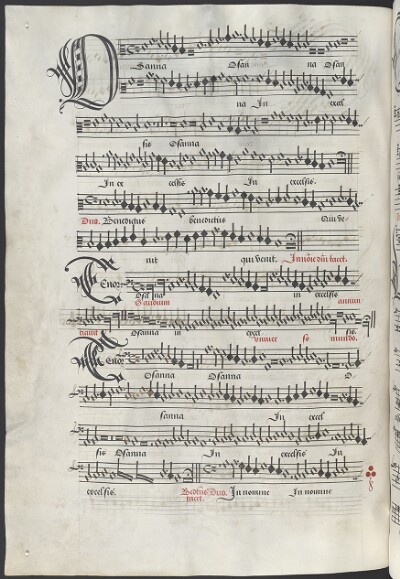 Osanna Osan na Osan
na In excel
sis Osanna
In ex celsis In excelsis.
Duo. Benedictus benedictus Qui ve
nit qui venit.
Tenor Osanna in excelsis
Gaudium
Osanna in excel sis.
mundo.
Osanna Osanna O
sanna In excel
sis Osanna In excelsis In
excelsis. Duo. In nomine In nomine
tacet.